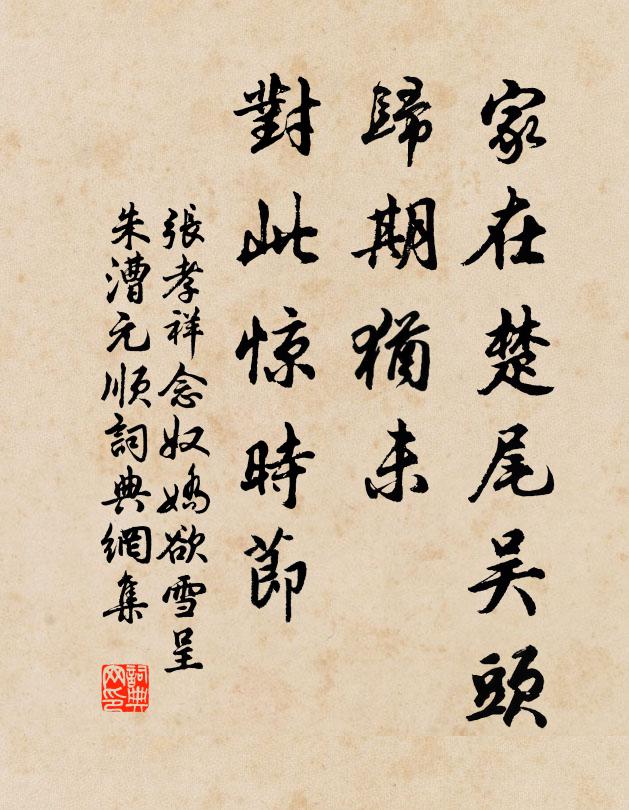 家在楚尾吴頭
歸期猶未
對此惊時節
張孝祥念奴嬌欲雪呈
朱漕元順詞典網集
詞典
网印